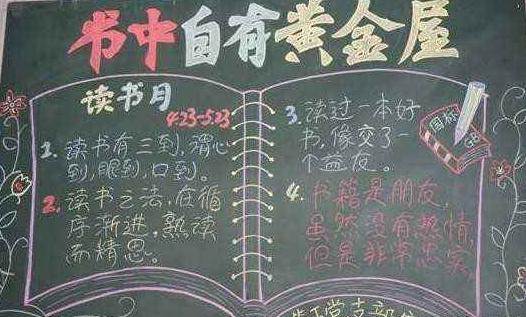 书中自有黄金屋
读书月
4.23-5.23
1. 读书有三到，谓心
到，眼到，口到。
2. 读书之法，在循
序渐进，熟读
而精思。
3. 读过一本好
书，像交了一
个益友。
4. 书籍是朋友，
虽然没有热情，
但是非常忠实。
党支部